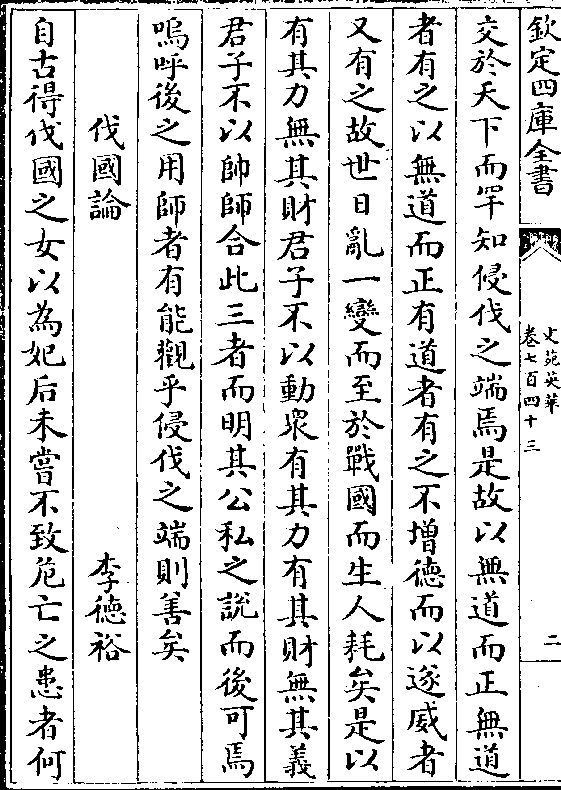 欽定四庫全書
文苑英華
卷七百四十三
二
交於天下而罕知侵伐之端焉是故以無道而正無道
者有之以無道而正有道者有之不增德而以遂威者
又有之故世日亂一變而至於戰國而生人耗矣是以
有其力無其財君子不以動衆有其力有其財無其義
君子不以帥師合此三者而明其公私之說而後可焉
嗚呼後之用師者有能觀乎侵伐之端則善矣
伐國論 李徳裕
自古得伐國之女以為妃后未嘗不致危亡之患者何